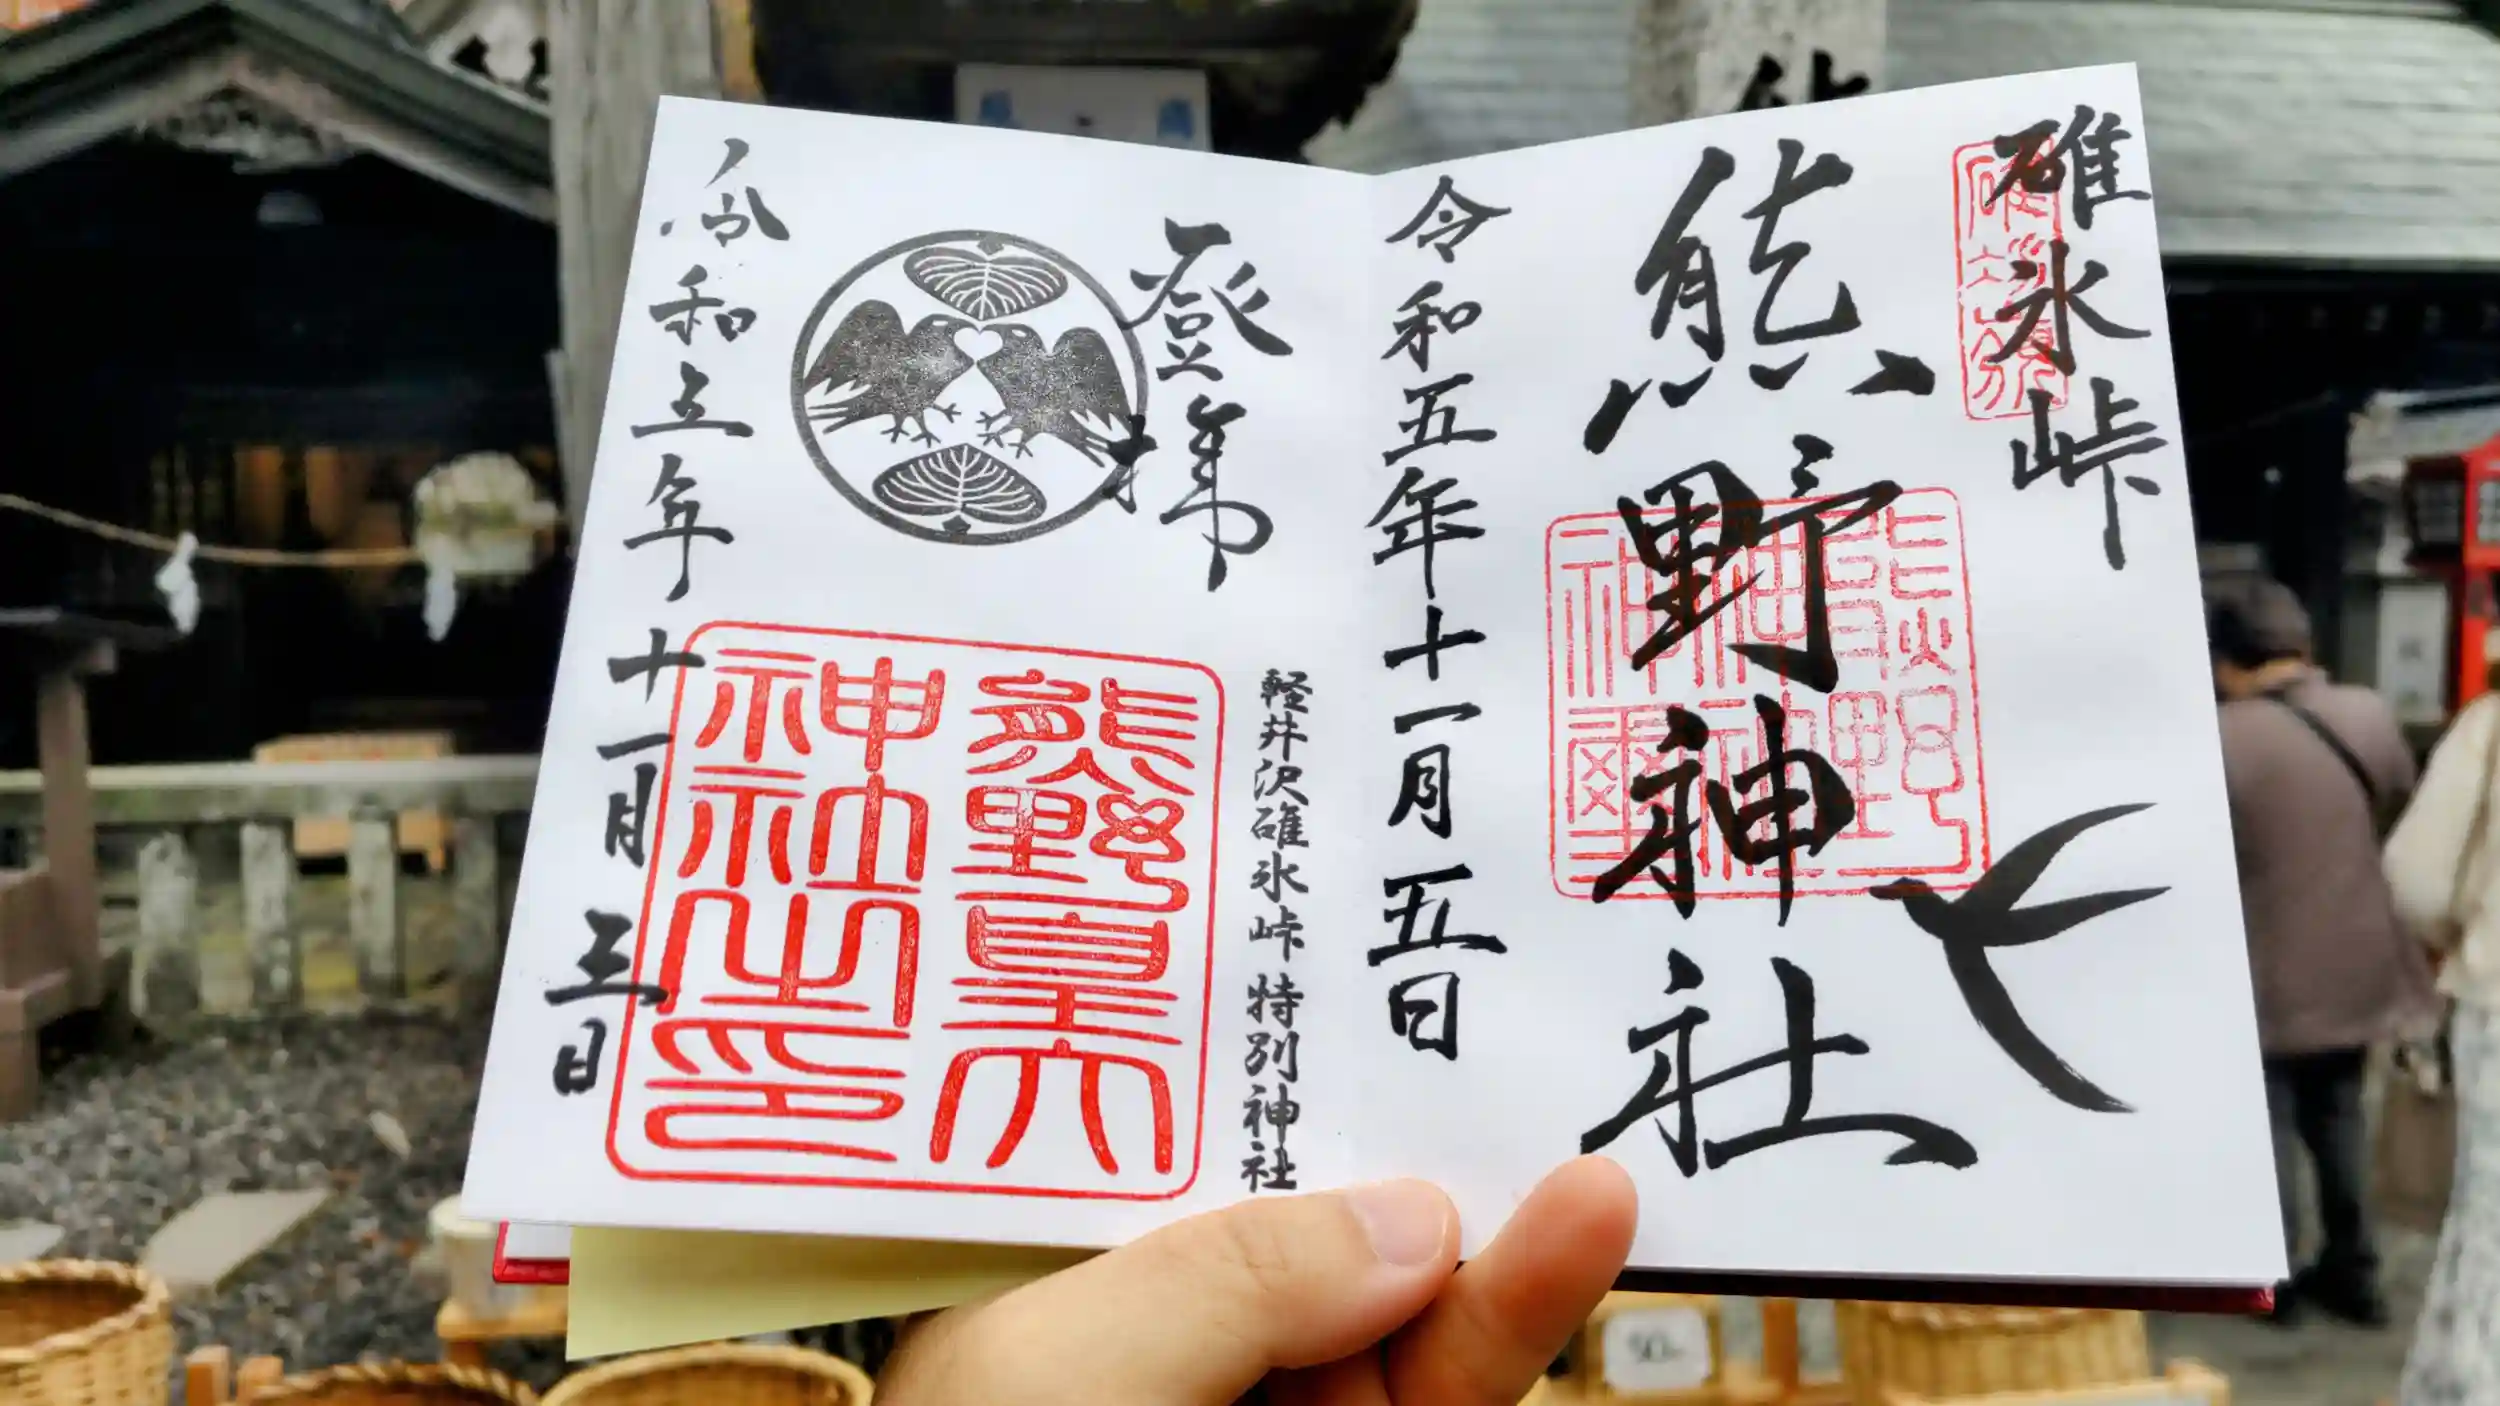 碓氷峠
熊野神社
令和五年十一月五日
登拝
軽井沢碓氷峠特別神社
熊野皇大
神社之印
令和五年十一月三日
熊
50